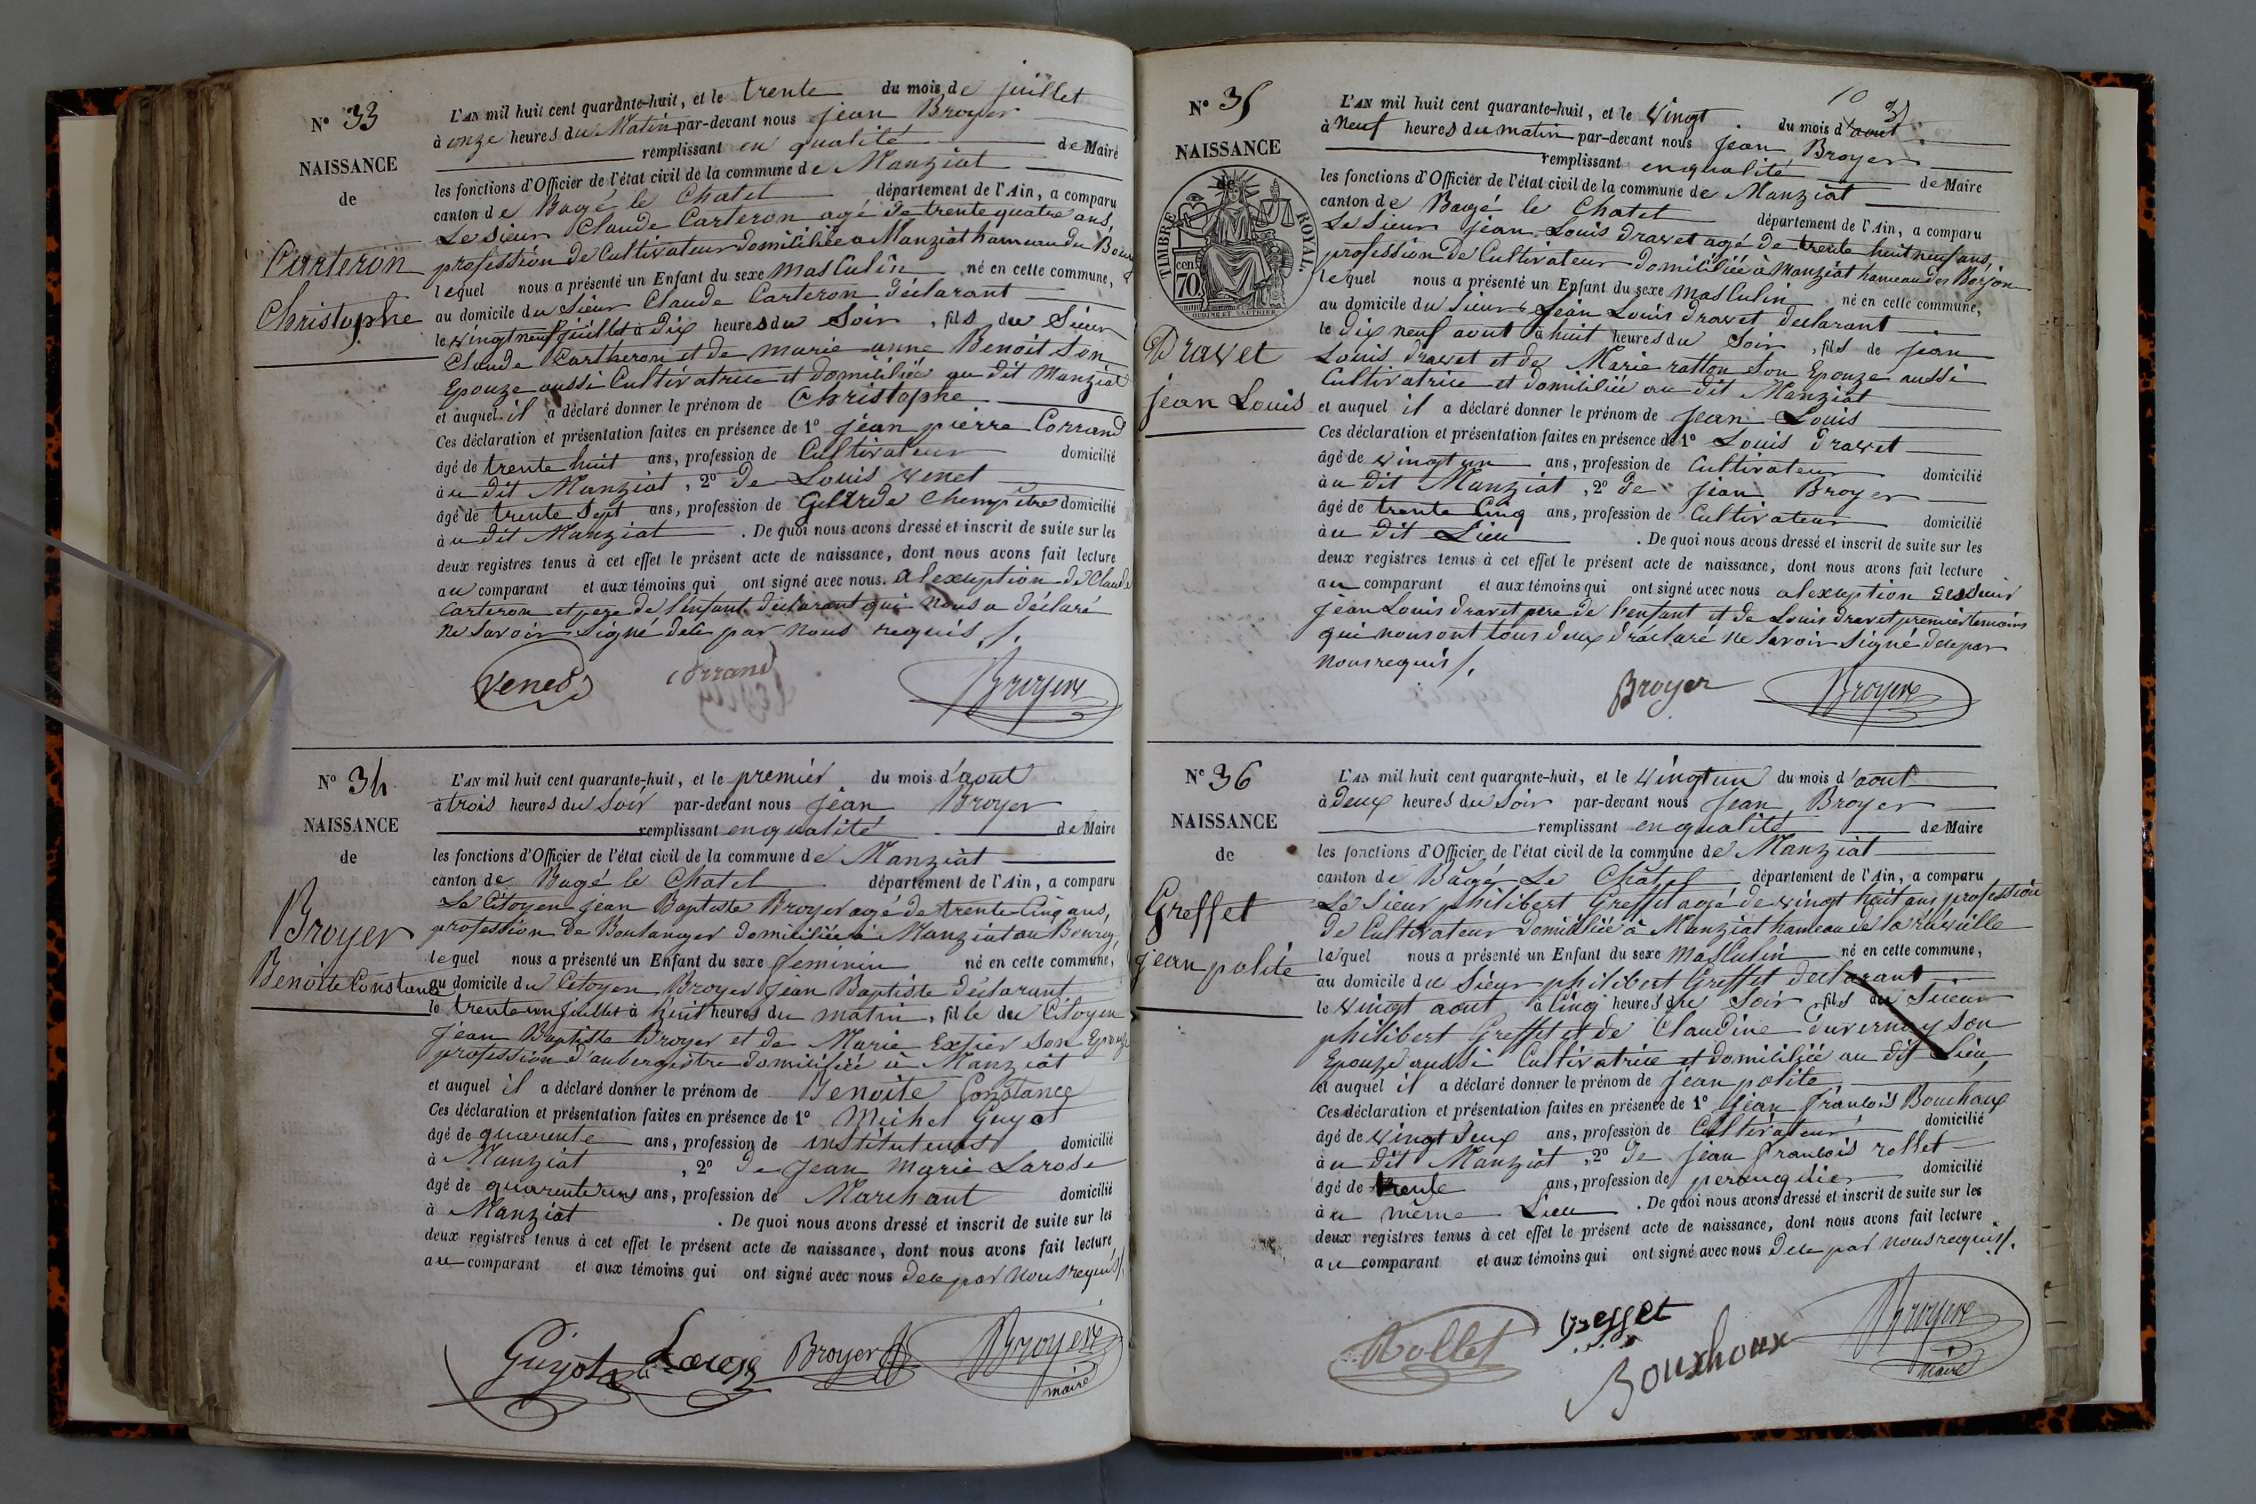 N° 33
NAISSANCE
de
Carteron
Christophe
L'AN mil huit cent quarante-huit, et le trente du mois de juillet
à onze heures du Matin par-devant nous jean Broyer
remplissant en qualité de Maire
les fonctions d'Officier de l'état civil de la commune de Manziat
canton de Bagé le Chatel département de l'Ain, a comparu
Le sieur Claude Carteron agé de trente quatre ans,
profession de Cultivateur domiciliée a Manziat hameau du Bourg
lequel nous a présenté un Enfant du sexe masculin né en cette commune,
au domicile du Sieur Claude Carteron déclarant
le vingt neuf juillet à dix heures du Soir, fils du Sieur
Claude Cartheron et de marie anne Benoit son
Epouze aussi Cultivatrice et domiciliée au dit Manziat
et auquel il a déclaré donner le prénom de Christophe
Ces déclaration et présentation faites en présence de 1° jean pierre Corrand
âgé de trente huit ans, profession de Cultivateur domicilié
à u dit Manziat, 2° de Louis venet
âgé de trente Sept ans, profession de Gearde Champêtre domicilié
à u dit Manziat. De quoi nous avons dressé et inscrit de suite sur les
deux registres tenus à cet effet le présent acte de naissance, dont nous avons fait lecture
au comparant et aux témoins qui ont signé avec nous. al'exception de Claude
Carteron et pere de l'enfant déclarant qui nous a déclaré
ne savoir Signé dele par nous requis ./.
Venet Corrand Broyer
N° 34
NAISSANCE
de
Broyer
Benoite Constance
L'AN mil huit cent quarante-huit, et le premier du mois d'aout
à trois heures du soir par-devant nous jean Broyer
remplissant en qualité de Maire
les fonctions d'Officier de l'état civil de la commune de Manziat
canton de Bagé le Chatel département de l'Ain, a comparu
Le Citoyen jean Baptiste Broyer agé de trente Cinq ans,
profession de Boulanger domiciliée à Manziat au Bourg,
lequel nous a présenté un Enfant du sexe feminin né en cette commune,
au domicile du Citoyen Broyer jean Baptiste déclarant
le trente un juillet à huit heures du matin, fille du Citoyen
jean Baptiste Broyer et de Marie Exfier son Epouze
profession d'aubergistre domiciliée à Manziat
et auquel il a déclaré donner le prénom de Benoite Constance
Ces déclaration et présentation faites en présence de 1° Michel Guyot
âgé de quarente ans, profession de instituteur domicilié
à Manziat, 2° de jean Marie Larose
âgé de quarente un ans, profession de Marchant domicilié
à Manziat. De quoi nous avons dressé et inscrit de suite sur les
deux registres tenus à cet effet le présent acte de naissance, dont nous avons fait lecture
au comparant et aux témoins qui ont signé avec nous dele par nous requis ./.
Guyot Larose Broyer Broyer
maire
10
N° 35
NAISSANCE
de
TIMBRE ROYAL
70 cen
Dravet
jean Louis
L'AN mil huit cent quarante-huit, et le vingt du mois d'aout
à Neuf heures du matin par-devant nous jean Broyer
remplissant en qualité de Maire
les fonctions d'Officier de l'état civil de la commune de Manziat
canton de Baugé le Chatel département de l'Ain, a comparu
Le Sieur jean Louis dravet agé de trente huit neuf ans,
profession de Cultivateur domiciliée à Manziat hameau des Borjon
lequel nous a présenté un Enfant du sexe masculin né en cette commune,
au domicile du Sieur jean Louis dravet declarant
le dix neuf aout à huit heures du Soir, fils de jean
Louis dravet et de Marie ratton son Epouze aussi
Cultivatrice et domiciliée au dit Manziat
et auquel il a déclaré donner le prénom de jean Louis
Ces déclaration et présentation faites en présence de 1° Louis dravet
âgé de vingt un ans, profession de Cultivateur domicilié
à u dit Manziat, 2° de jean Broyer
âgé de trente Cinq ans, profession de Cultivateur domicilié
à u dit Lieu. De quoi nous avons dressé et inscrit de suite sur les
deux registres tenus à cet effet le présent acte de naissance, dont nous avons fait lecture
au comparant et aux témoins qui ont signé avec nous al'exception des Sieur
jean Louis dravet pere de l'enfant et de Louis dravet premier temoins
qui nous ont tous deux déclaré ne savoir Signé dele par
nous requis ./.
Broyer Broyer
N° 36
NAISSANCE
de
Greffet
jean polite
L'AN mil huit cent quarante-huit, et le vingt un du mois d'aout
à deux heures du soir par-devant nous jean Broyer
remplissant en qualité de Maire
les fonctions d'Officier de l'état civil de la commune de Manziat
canton de Bâgé Le Châtel département de l'Ain, a comparu
Le Sieur philibert Greffet agé de vingt huit ans profession
de Cultivateur domiciliée à Manziat hameau de
lequel nous a présenté un Enfant du sexe masculin né en cette commune,
au domicile du Sieur philibert Greffet declarant
le vingt aout à Cinq heures du Soir, fils du Sieur
philibert Greffet et de Claudine duvernay son
Epouze aussi Cultivatrice et domiciliée au dit Lieu,
et auquel il a déclaré donner le prénom de jean polite
Ces déclaration et présentation faites en présence de 1° jean francois Bouchoux
âgé de vingt deux ans, profession de Cultivateur domicilié
à u dit Manziat, 2° de jean francois rollet
âgé de trente ans, profession de perruquier domicilié
à u même Lieu. De quoi nous avons dressé et inscrit de suite sur les
deux registres tenus à cet effet le présent acte de naissance, dont nous avons fait lecture
au comparant et aux témoins qui ont signé avec nous dele par nous requis ./.
Rollet Greffet Bouxhoux Broyer
maire